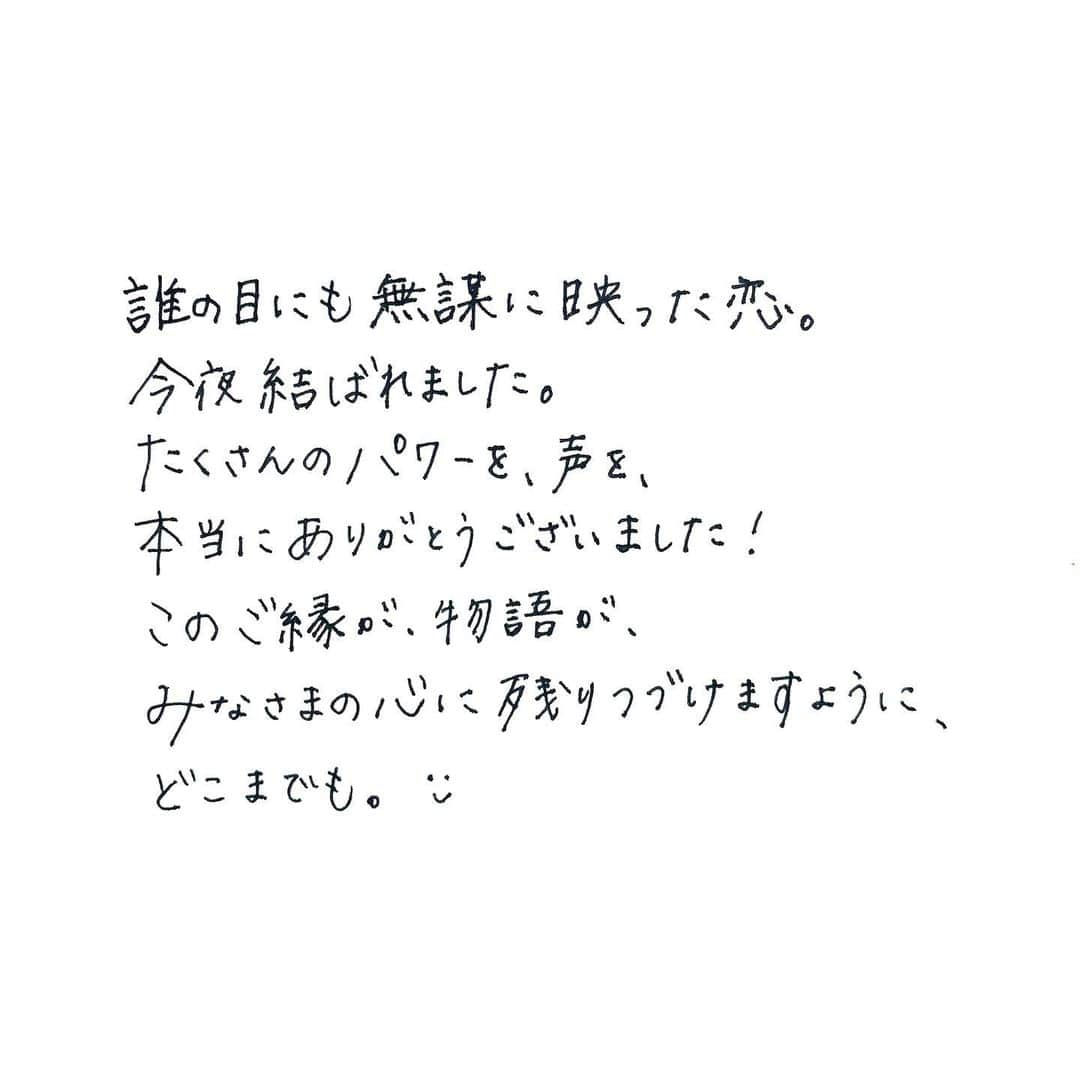 誰の目にも無謀に映った恋。
今夜結ばれました。
たくさんのパワーを、声を、
本当にありがとうございました!
このご縁が、物語が、
みなさまの心に残りつづけますように、
どこまでも。